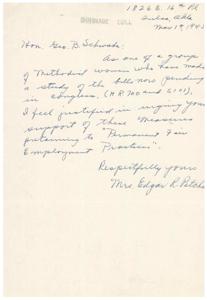 1826 E. 16th Pl
Tulsa, Okla
Nov 19, 1945
Hon. Geo. B. Schwabe:
As one of a group
of Methodist women who have made
a study of the bills now pending
in Congress, (H.R. 700 and S. 101),
I feel justified in urging your
support of these measures
pertaining to "Permanent Fair
Employment Practices".
Respectfully yours
Mrs. Edgar R.